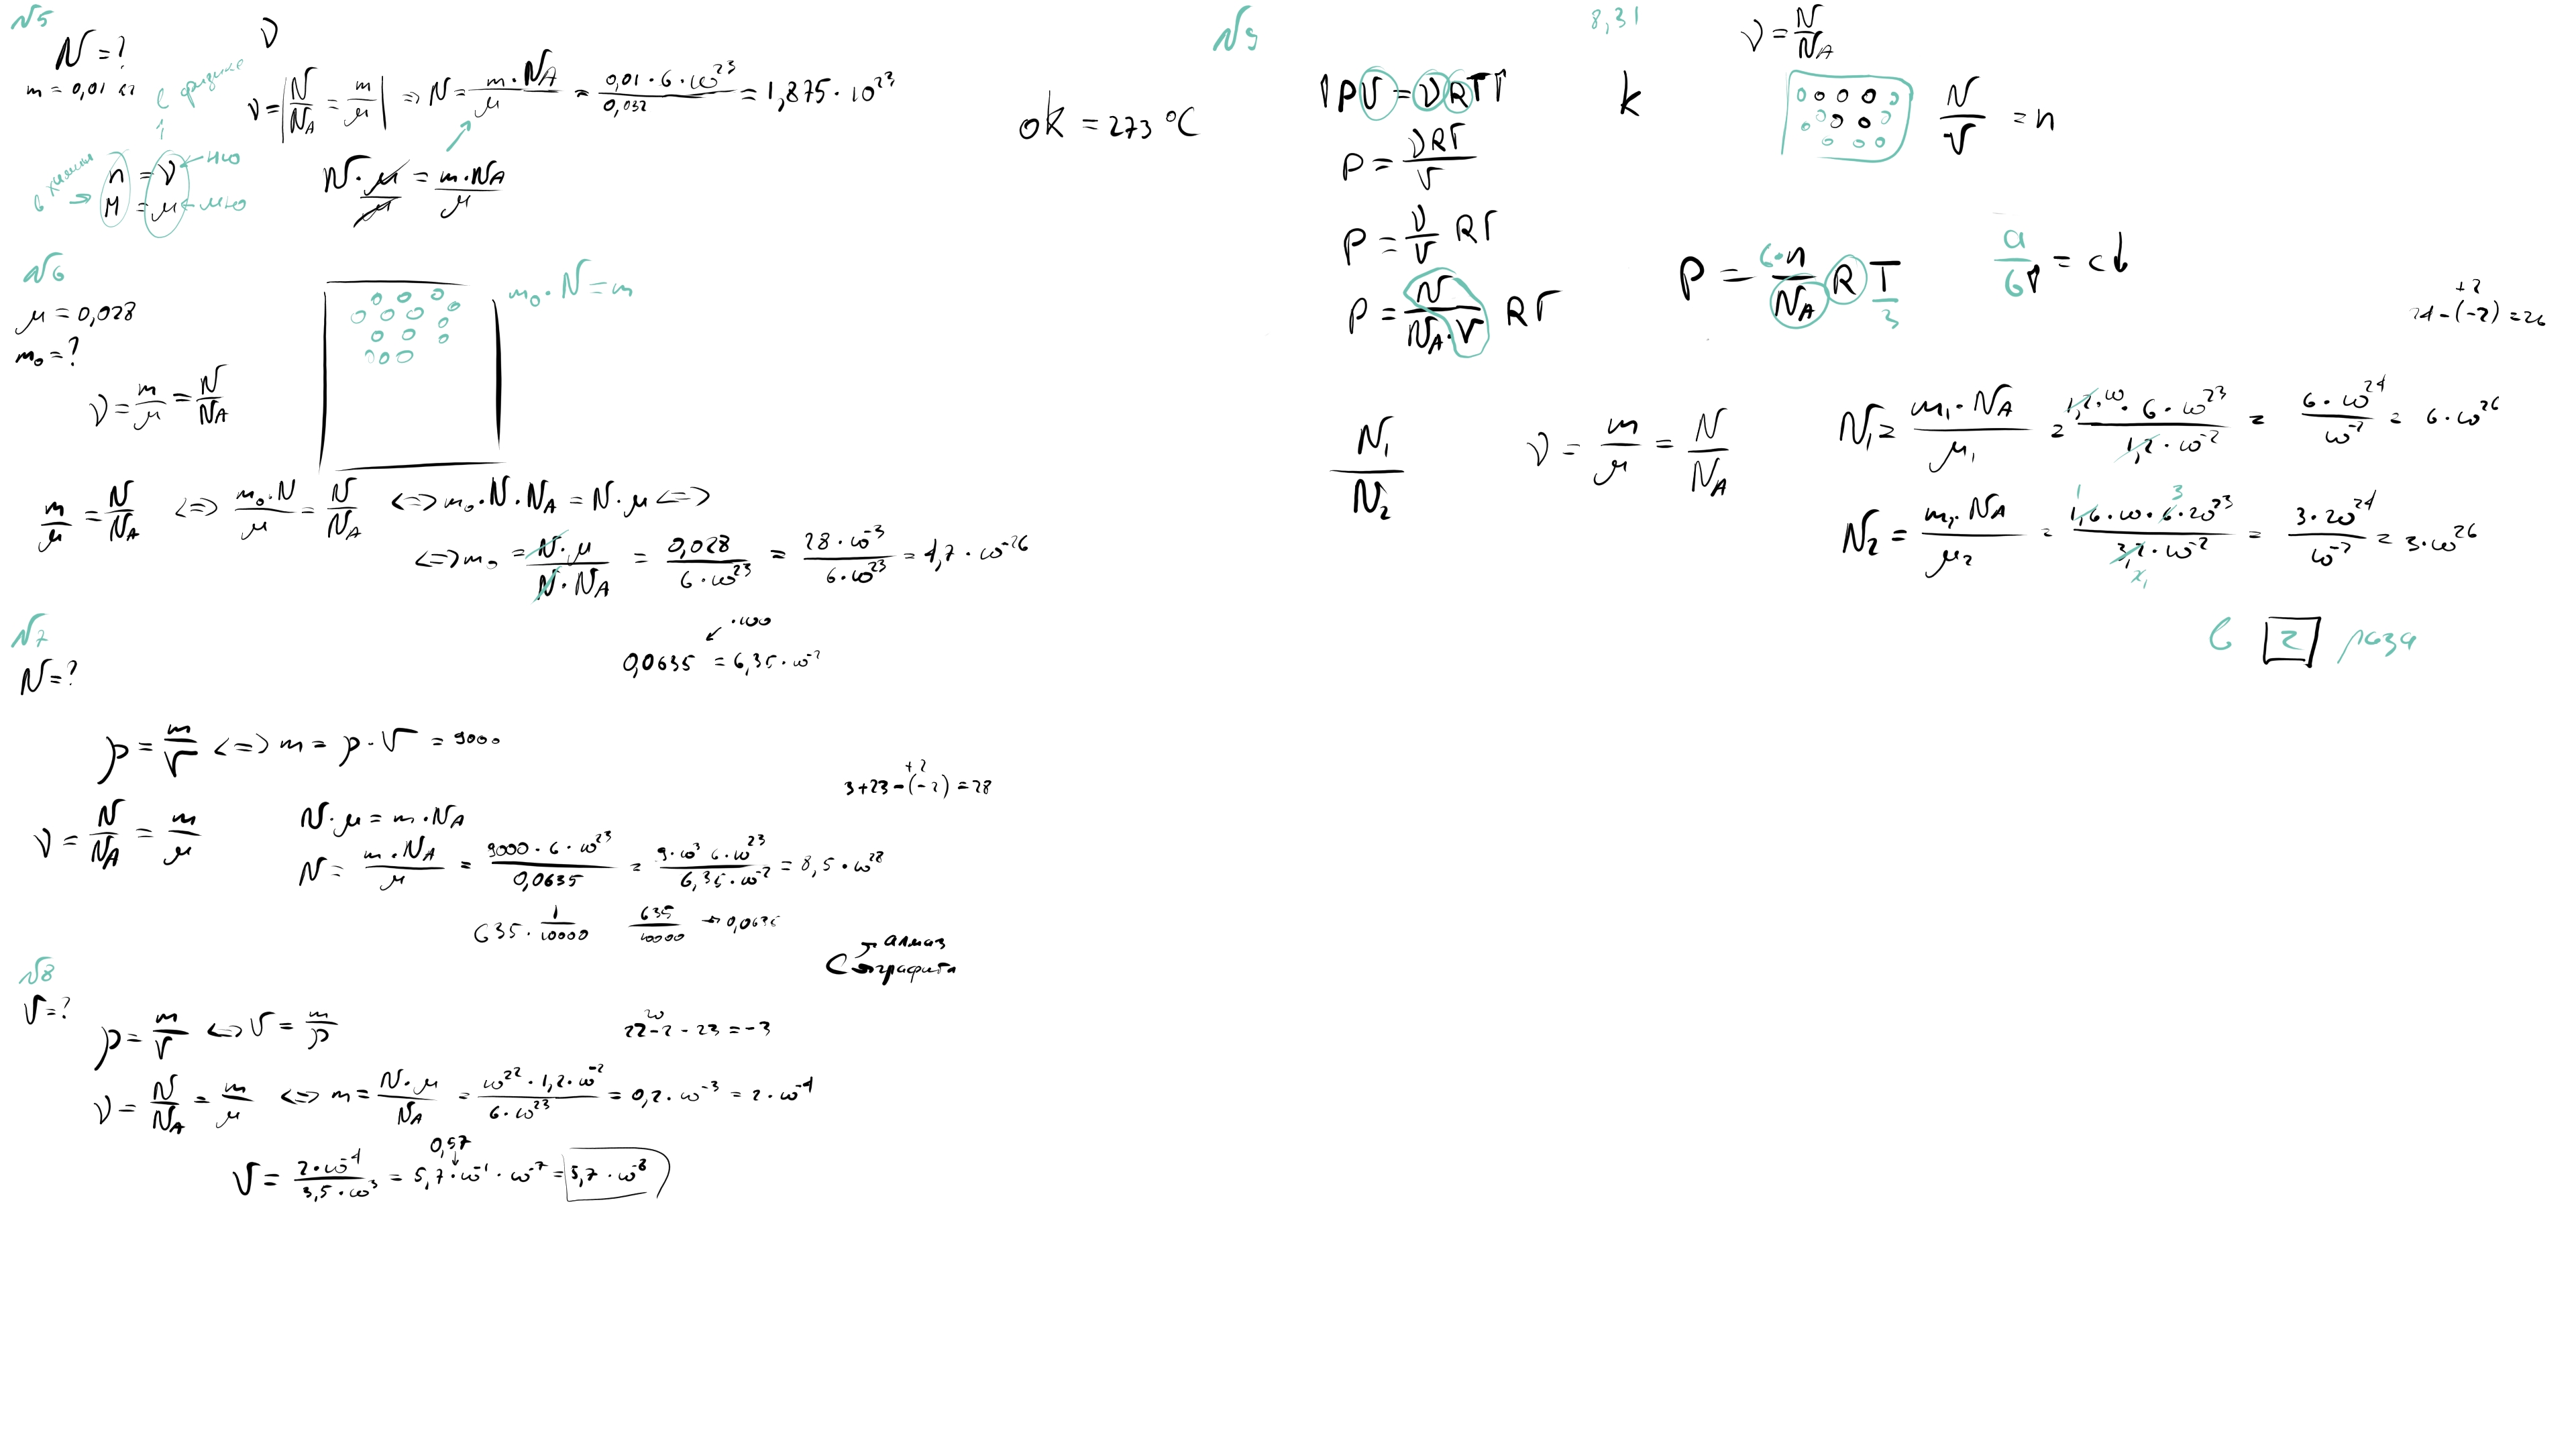 №5
N = ?
m = 0,01 кг
в физике
ν
ν = N/N_A = m/μ ⇒ N = m·N_A/μ = 0,01·6·10²³/0,032 = 1,875·10²³
в химии
n = ν ← ню
M = μ ← мю
N·μ/μ = m·N_A/μ
0K = 273 °C
№6
μ = 0,028
m₀ = ?
m₀·N = m
ν = m/μ = N/N_A
m/μ = N/N_A <=> m₀·N/μ = N/N_A <=> m₀·N·N_A = N·μ <=>
<=> m₀ = N·μ/N·N_A = 0,028/6·10²³ = 28·10⁻³/6·10²³ = 4,7·10⁻²⁶
№7
N = ?
·100
0,0635 = 6,35·10⁻²
ρ = m/V <=> m = ρ·V = 9000
+2
3+23-(-2) = 28
ν = N/N_A = m/μ
N·μ = m·N_A
N = m·N_A/μ = 9000·6·10²³/0,0635 = 9·10³ 6·10²³/6,35·10⁻² = 8,5·10²⁸
635·1/10000 635/10000 → 0,0635
алмаз
C → графита
№8
V = ?
ρ = m/V <=> V = m/ρ
20
22-2-23 = -3
ν = N/N_A = m/μ <=> m = N·μ/N_A = 10²²·1,2·10⁻²/6·10²³ = 0,2·10⁻³ = 2·10⁻⁴
0,57
V = 2·10⁻⁴/3,5·10³ = 5,7·10⁻¹·10⁻⁷ = 5,7·10⁻⁸
№9
8,31
ν = N/N_A
↑PV = νRT↑
k
N/V = n
P = νRT/V
P = ν/V RT
P = N/N_A·V RT
P = 6·n/N_A R T/3
a/b↑ = c↓
+2
24-(-2) = 26
N₁/N₂
ν = m/μ = N/N_A
N₁ = m₁·N_A/μ₁ = 1,2·10·6·10²³/1,2·10⁻² = 6·10²⁴/10⁻² = 6·10²⁶
N₂ = m₂·N_A/μ₂ = 1,6·10·6·20²³/3,2·10⁻² = 3·20²⁴/10⁻² = 3·10²⁶
в 2 раза